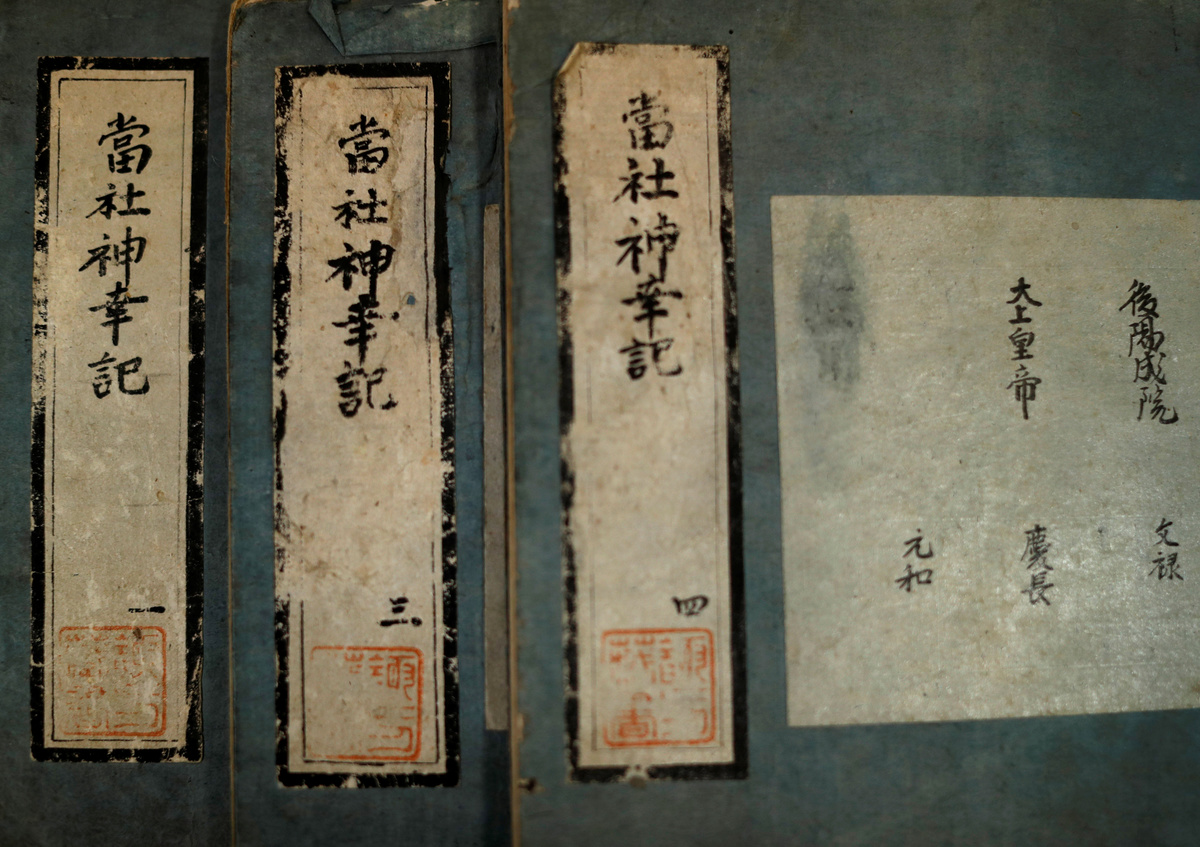 當社神幸記
一
當社神幸記
三
當社神幸記
四
後陽成院
文禄
大上皇帝
慶長
元和